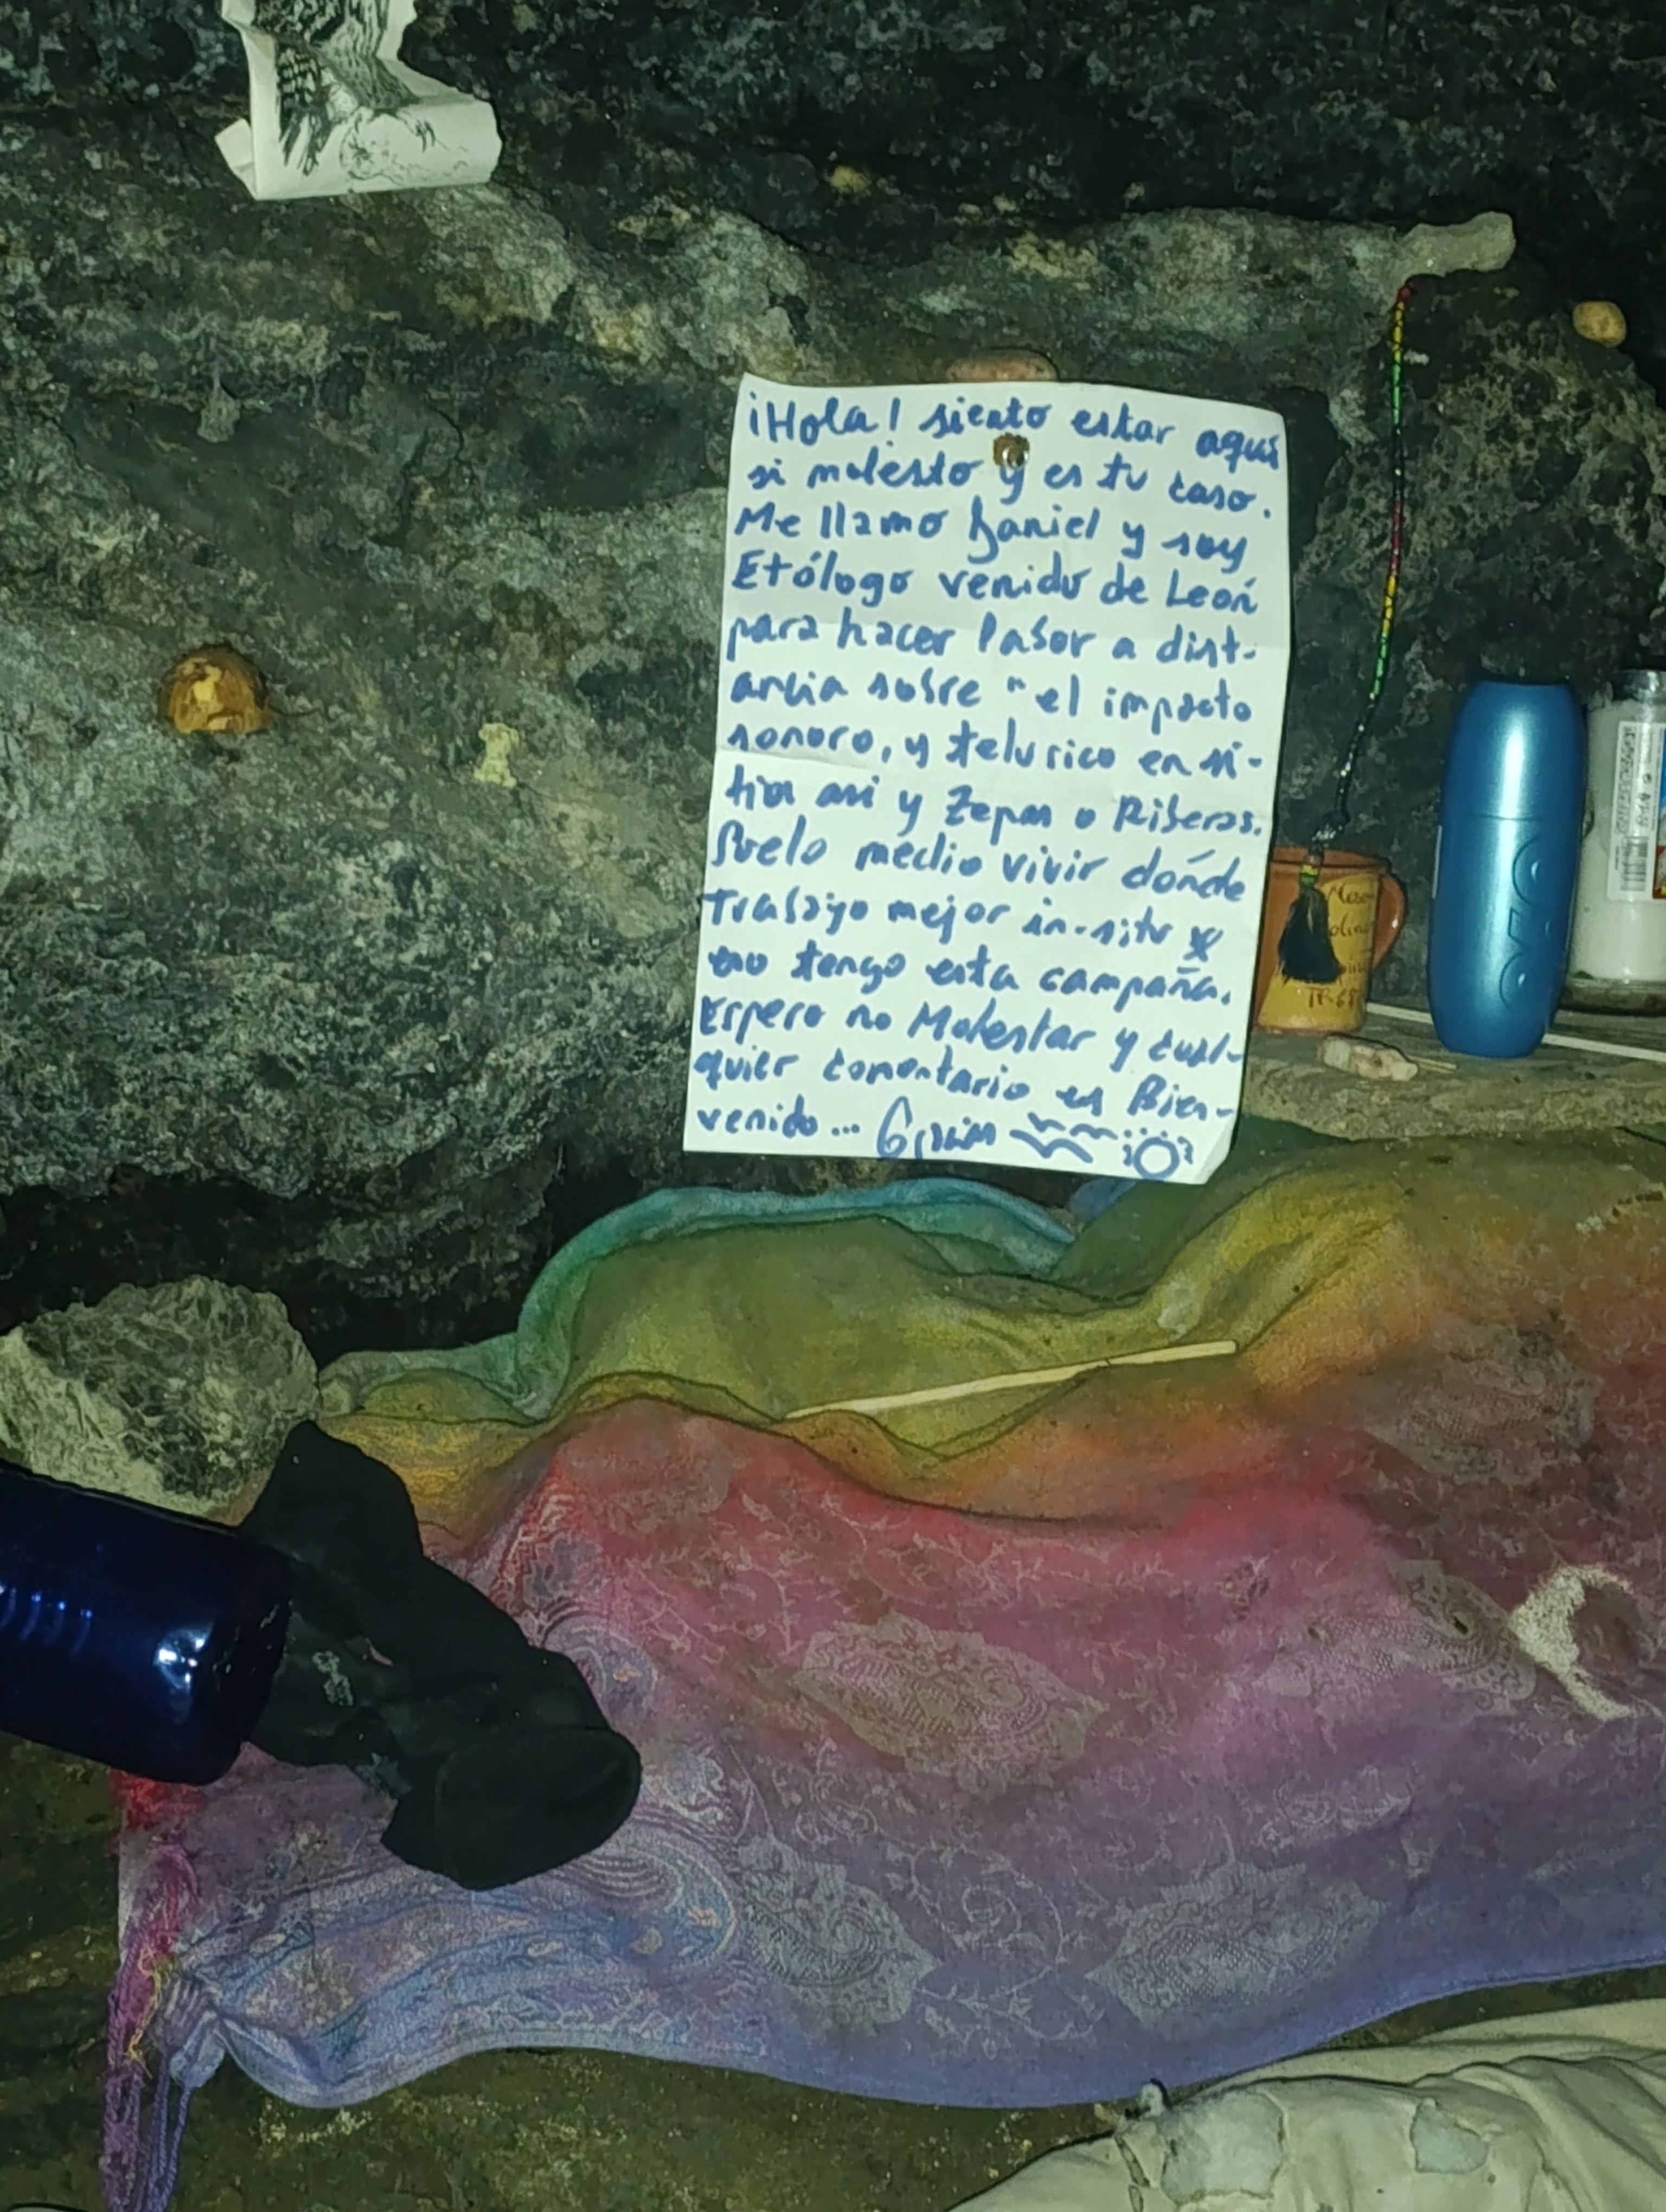 ¡Hola! siento estar aquí
si molesto y es tu caso.
Me llamo Daniel y soy
Etólogo venido de León
para hacer labor a dist-
ancia sobre "el impacto
sonoro, y telurico en si-
tios asi y Zepas o Riberas.
Suelo medio vivir dónde
Trabajo mejor in-situ y
eso tengo esta campaña.
Espero no Molestar y cual-
quier comentario es Bien-
venido... Gracias
OZO